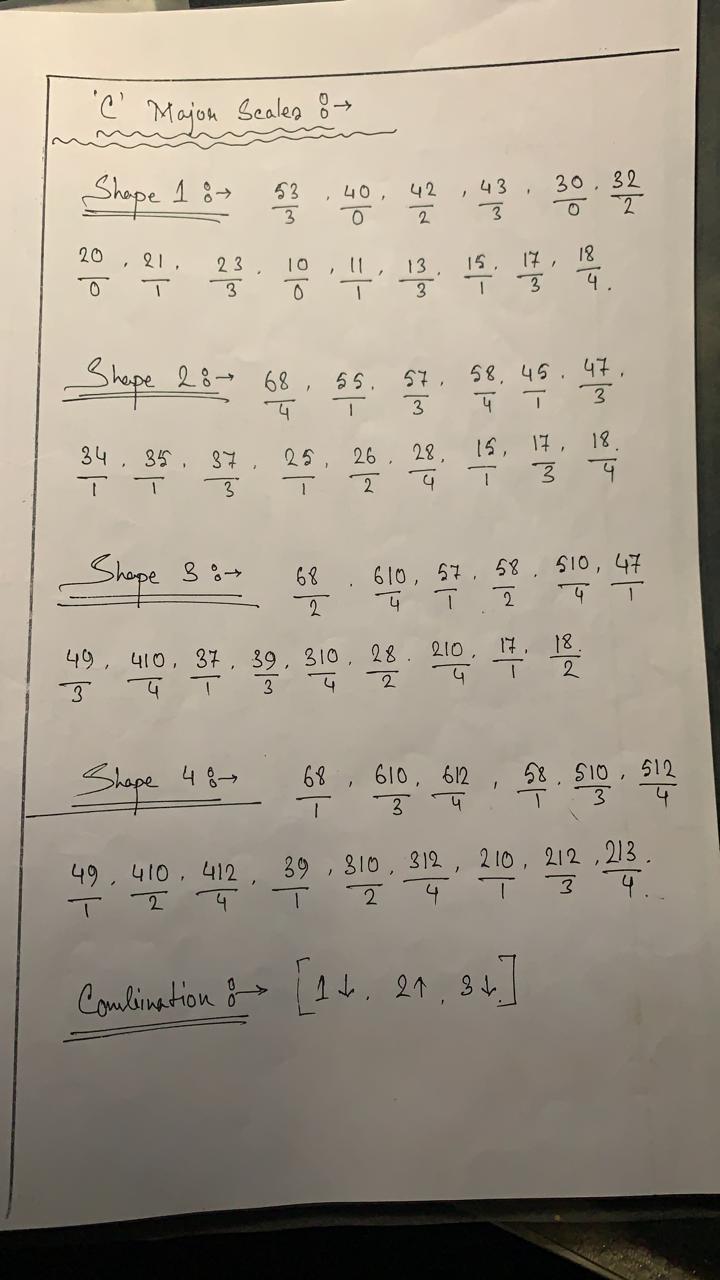 'C' Major Scales :→
Shape 1 :→ 53/3, 40/0, 42/2, 43/3, 30/0, 32/2
20/0, 21/1, 23/3, 10/0, 11/1, 13/3, 15/1, 17/3, 18/4.
Shape 2 :→ 68/4, 55/1, 57/3, 58/4, 45/1, 47/3,
34/1, 35/1, 37/3, 25/1, 26/2, 28/4, 15/1, 17/3, 18/4.
Shape 3 :→ 68/2, 610/4, 57/1, 58/2, 510/4, 47/1
49/3, 410/4, 37/1, 39/3, 310/4, 28/2, 210/4, 17/1, 18/2.
Shape 4 :→ 68/1, 610/3, 612/4, 58/1, 510/3, 512/4
49/1, 410/2, 412/4, 39/1, 310/2, 312/4, 210/1, 212/3, 213/4.
Combination :→ [1↓, 2↑, 3↓]